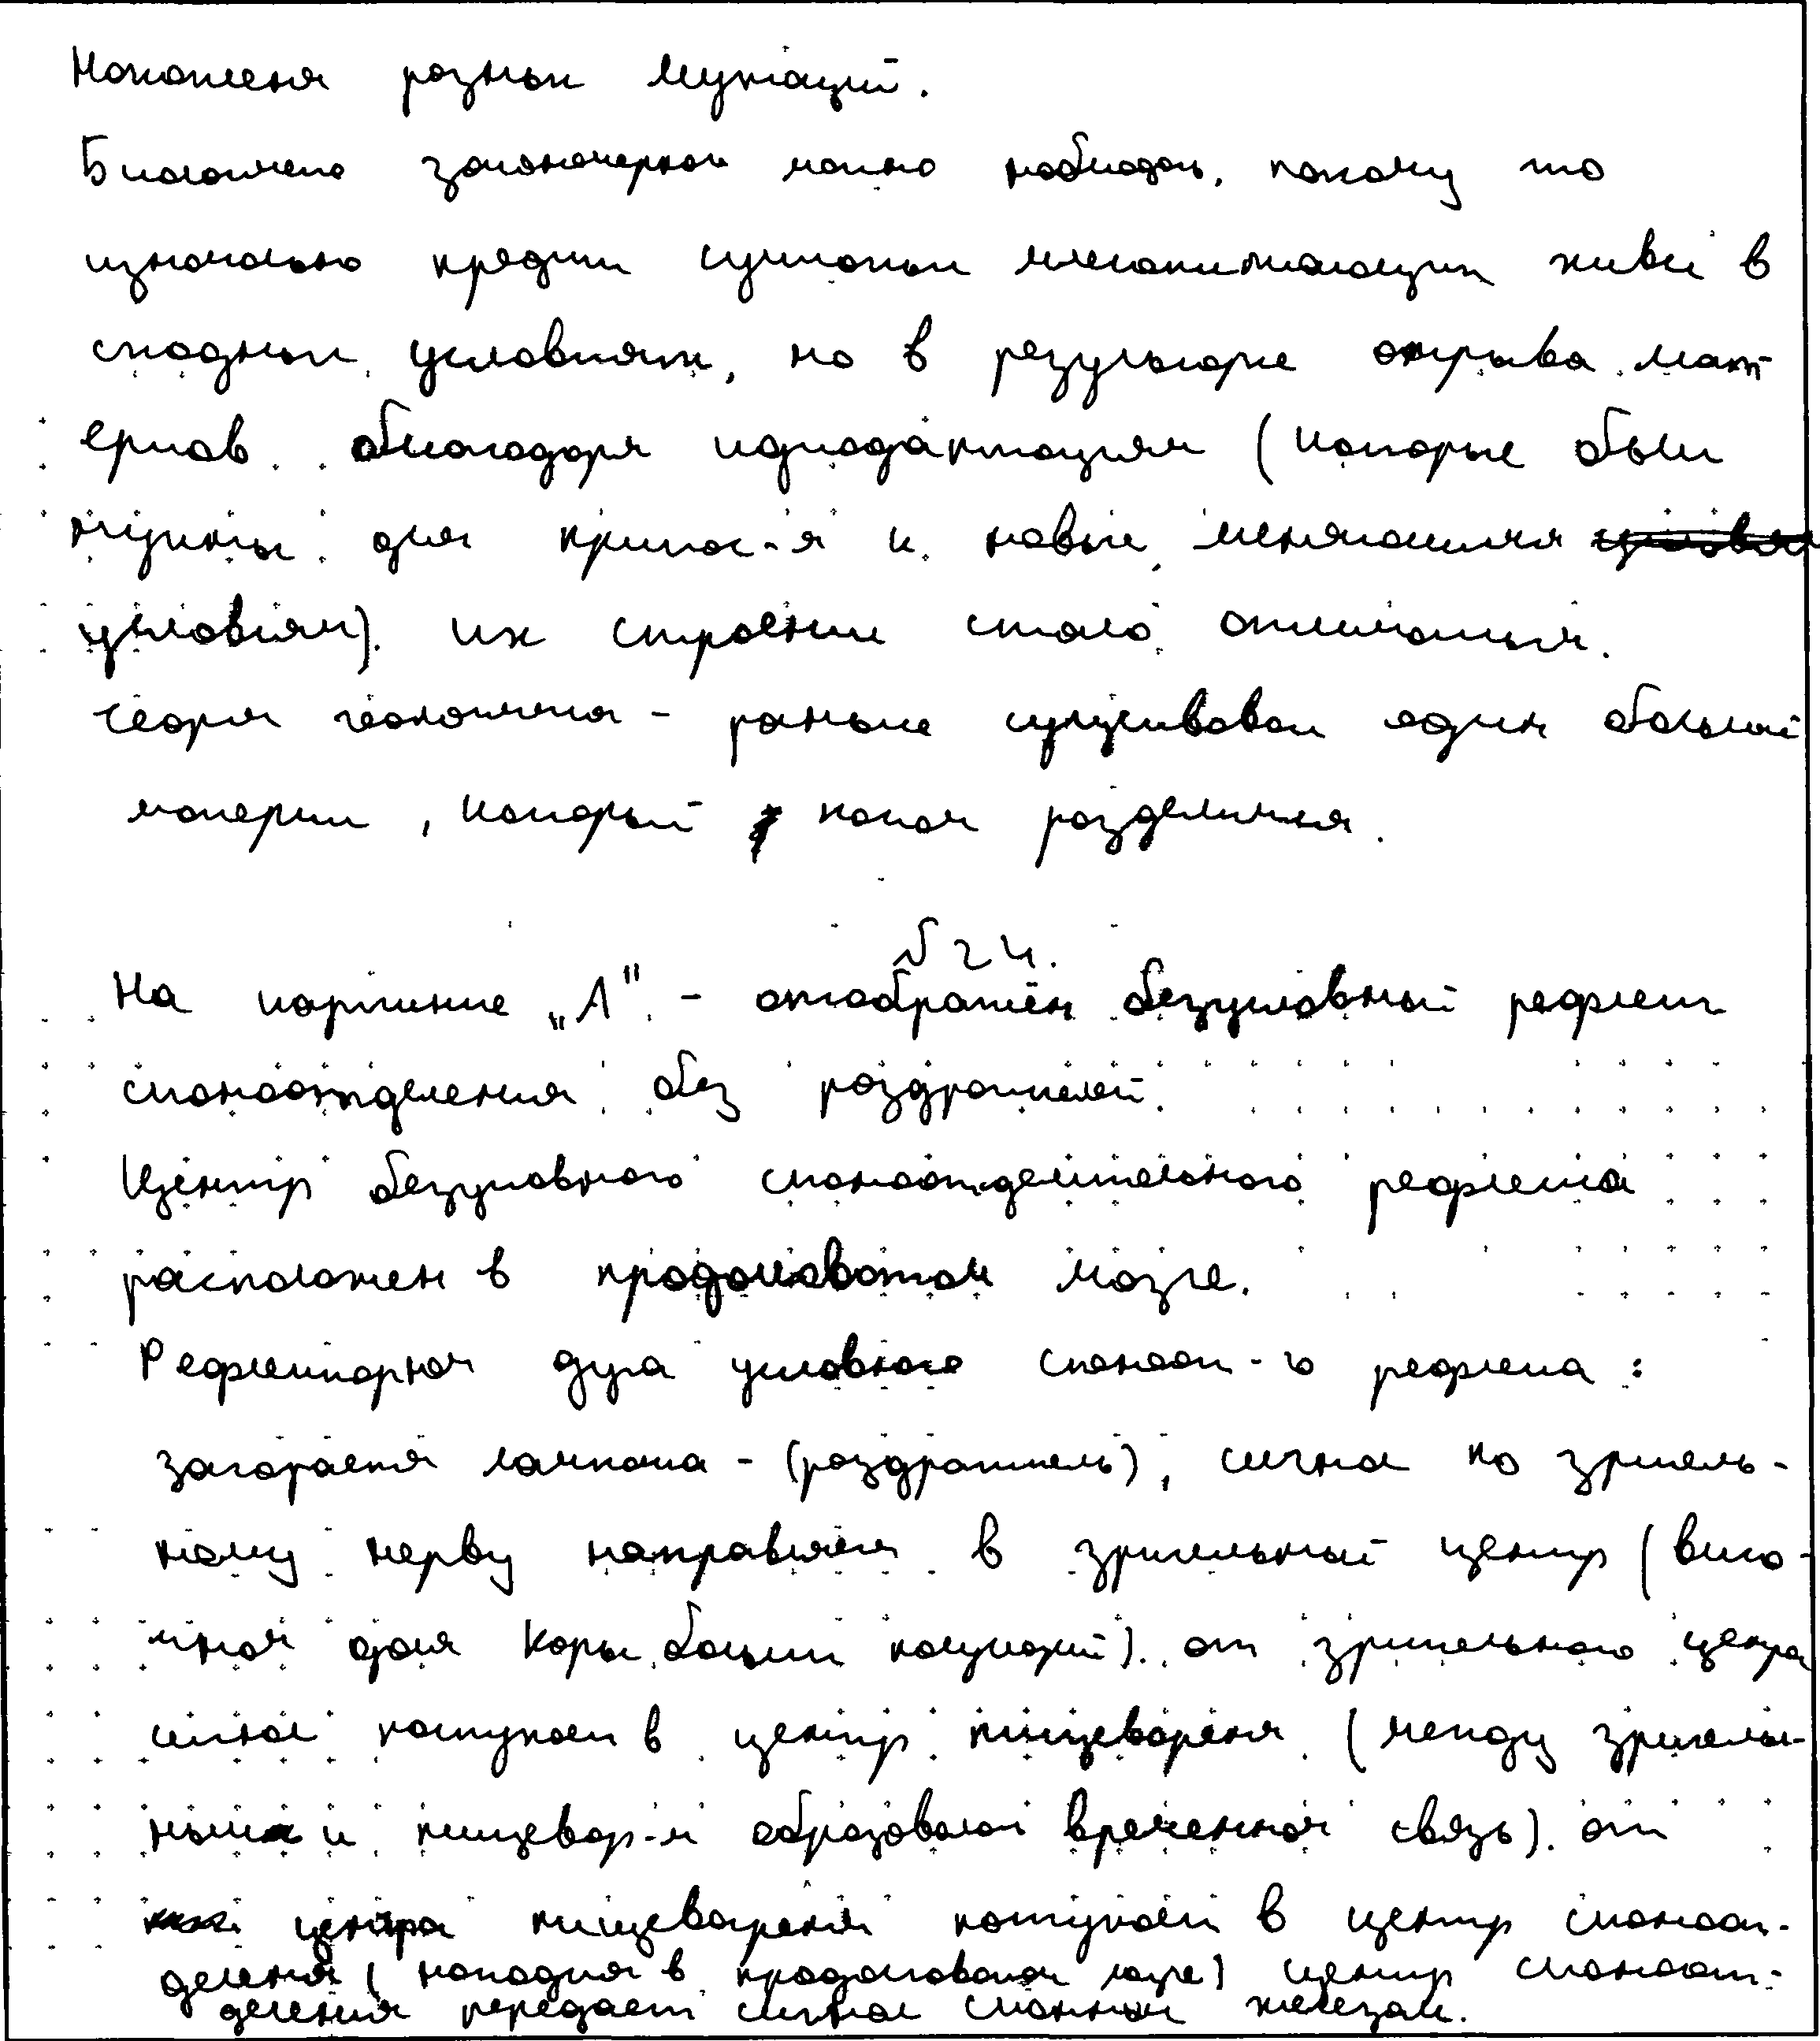 Накопления разных мутаций.
Биологическо закономерной можно наблюдать, потому что
изначально предки сумчатых млекопитающих живы в
сходных условиях, но в результате отрыва мат
ериков благодаря идиоадаптациям (которые были
нужны для присп-я к новым меняющимся
условиям). Их строение стало отличаться.
Теория геологическая - раньше существовал один большой
материк, который потом разделился.
№ 24.
На картинке „А" - отображён безусловный рефлекс
слюноотделения без раздражителей.
Центр безусловного слюноотделительного рефлекса
расположен в продолговатом мозге.
Рефлекторная дуга условного слюноот-го рефлекса:
загорается лампочка - (раздражитель), сигнал по зритель-
ному нерву направляется в зрительный центр (висо-
чная доля коры больших полушарий). от зрительного центра
сигнал поступает в центр пищеварения (между зритель-
ным и пищевар-м образовалась временная связь). от
центра пищеварения поступает в центр слюноот-
деления (находится в продолговатом мозге) центр слюноот-
деления передает сигнал слюнным железам.